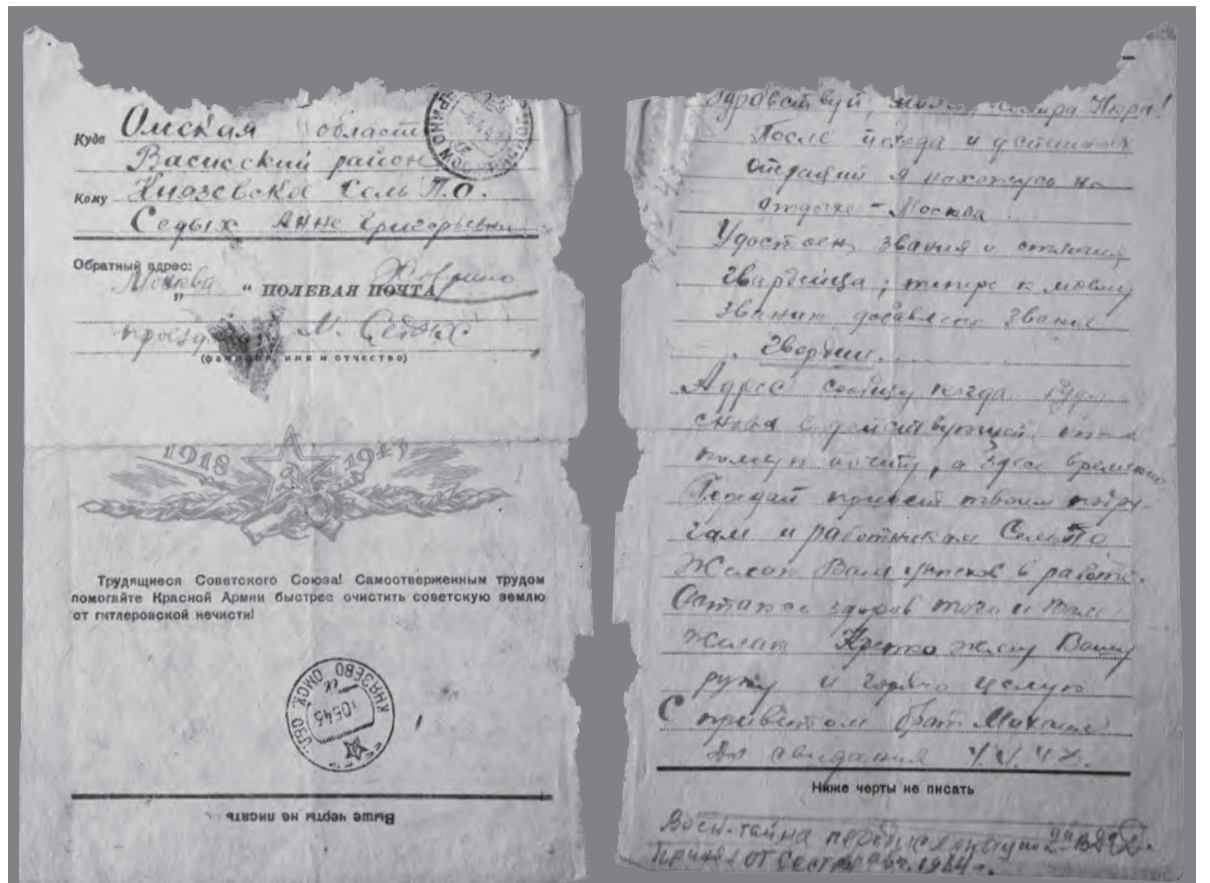 Куда Омская област
Васисский район
Кому Князевское Сель П.О.
Седых Анне Григорьевн
Обратный адрес:
Москва Ховрино
" " ПОЛЕВАЯ ПОЧТА
проезд М. Седых
(фамилия, имя и отчество)
1918 1943
Трудящиеся Советского Союза! Самоотверженным трудом
помогайте Красной Армии быстрее очистить советскую землю
от гитлеровской нечисти!
КНЯЗЕВО ОМСК. ОБЛ.
Выше черты не писать
Здравствуй, сестра Нюра!
После похода и успешных
операций я нахожусь на
отдыхе – Москва
Удостоен звания и отличия
Гвардейца; теперь к моему
званию добавлено звание
Гвардии.
Адрес сообщу когда буду
снова в действующей
, а здесь временно
Передай привет твоим подру-
гам и работникам СельПО
Желаю Вам успехов в работе.
Остаюсь здоров того и Вам
желаю Крепко жму Вашу
руку и горячо целую
С приветом брат Михаил
До свидания
Ниже черты не писать
Воен. тайна
Принял от сестры